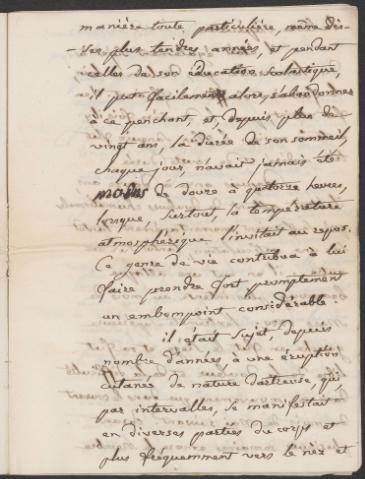 manière toute particulière, même dé-
-ses plus tendres années, et pendant
celles de son éducation scolastique,
il put facilement alors, s'abandonner
à ce penchant, et depuis plus de
vingt ans, la durée de son sommeil,
chaque jour, n'avait jamais été
moins de douze à quatorze heures,
lorsque, surtout, la température
atmosphérique l'invitait au repos.
Ce genre de vie contribua à lui
faire prendre fort promptement
un embonpoint considérable.
il était sujet, depuis
nombre d'années, à une éruption
Cutanée de nature dartreuse, qui,
par intervalles, se manifestait
en diverses parties du corps et
plus fréquemment vers le nèz et